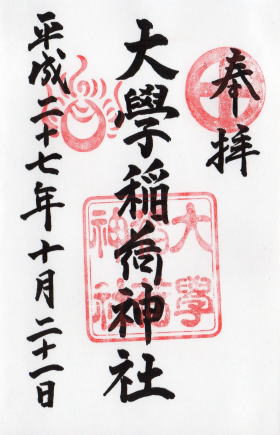 奉拝
大學稲荷神社
平成二十七年十月二十一日
大學
稲荷
神社